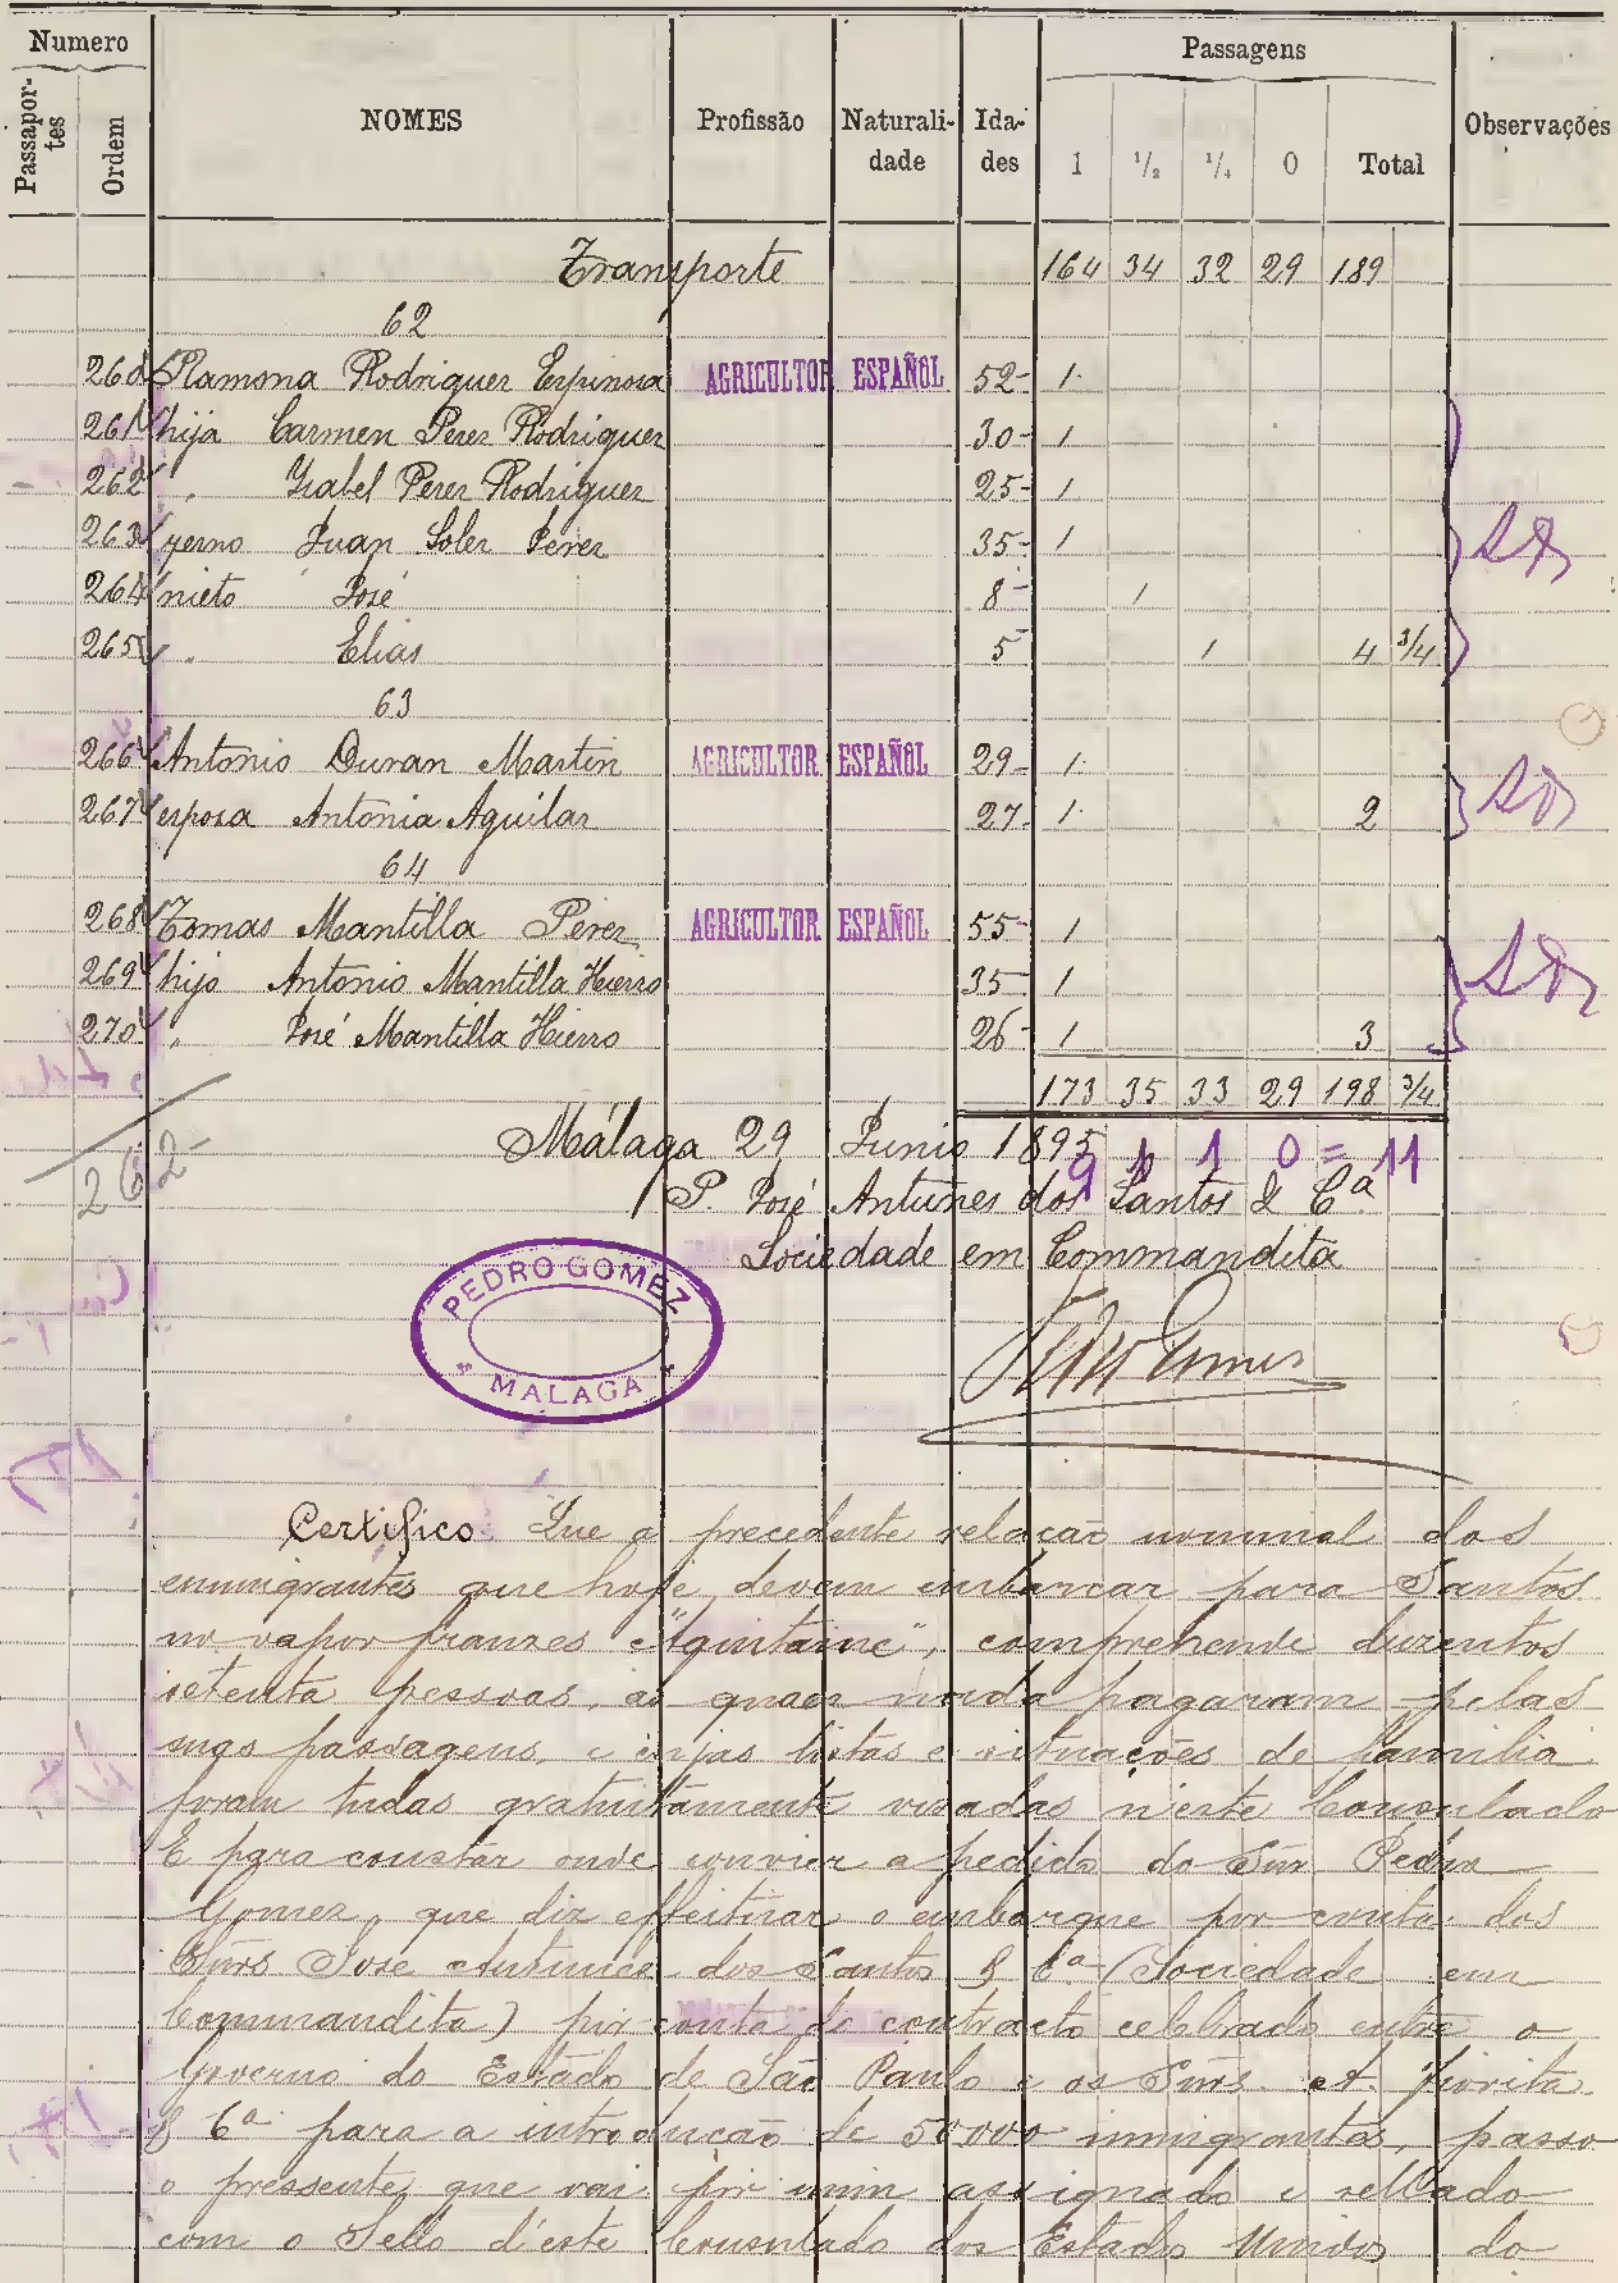 Numero Passagens
Passapor-tes Ordem NOMES Profissão Naturali-dade Ida-des 1 1/2 1/4 0 Total Observações
Transporte 164 34 32 29 189
62
260 Ramona Rodriguez Espinosa AGRICULTOR ESPAÑOL 52 1
261 hija Carmen Perez Rodriguez 30 1
262 " Ysabel Perez Rodriguez 25 1
263 yerno Juan Soler Perez 35 1
264 nieto José 8 1
265 " Elias 5 1 4 3/4
63
266 Antonio Duran Martin AGRICULTOR ESPAÑOL 29 1
267 esposa Antonia Aguilar 27 1 2
64
268 Tomas Mantilla Perez AGRICULTOR ESPAÑOL 55 1
269 hijo Antonio Mantilla Hierro 35 1
270 " José Mantilla Hierro 26 1 3
173 35 33 29 198 3/4
Málaga 29 Junio 1895
9 1 1 0 = 11
262
P. José Antunes dos Santos & Cª
Sociedade em Commandita
PEDRO GOMEZ
MALAGA
Certifico Que a precedente relação nominal dos
emmigrantes que hoje devem embarcar para Santos
no vapor franzes "Aquitaine", comprehende duzentos
setenta pessoas, as quaes nada pagaram pelas
suas passagens, e cujas listas e situações de familia
foram todas gratuitamente visadas n'este Consulado
E para constar onde convier a pedido do Snr Pedro
Gomez, que diz effeituar o embarque por conta dos
Snrs José Antunes dos Santos & Cª (Sociedade em
Commandita) por conta do contracto celebrado entre o
Governo do Estado de São Paulo e os Snrs. A. Fiorita
& Cª para a introducção de 50000 immigrantes, passo
o pressente que vai por mim assignado e sellado
com o Sello d'este Consulado dos Estados Unidos do